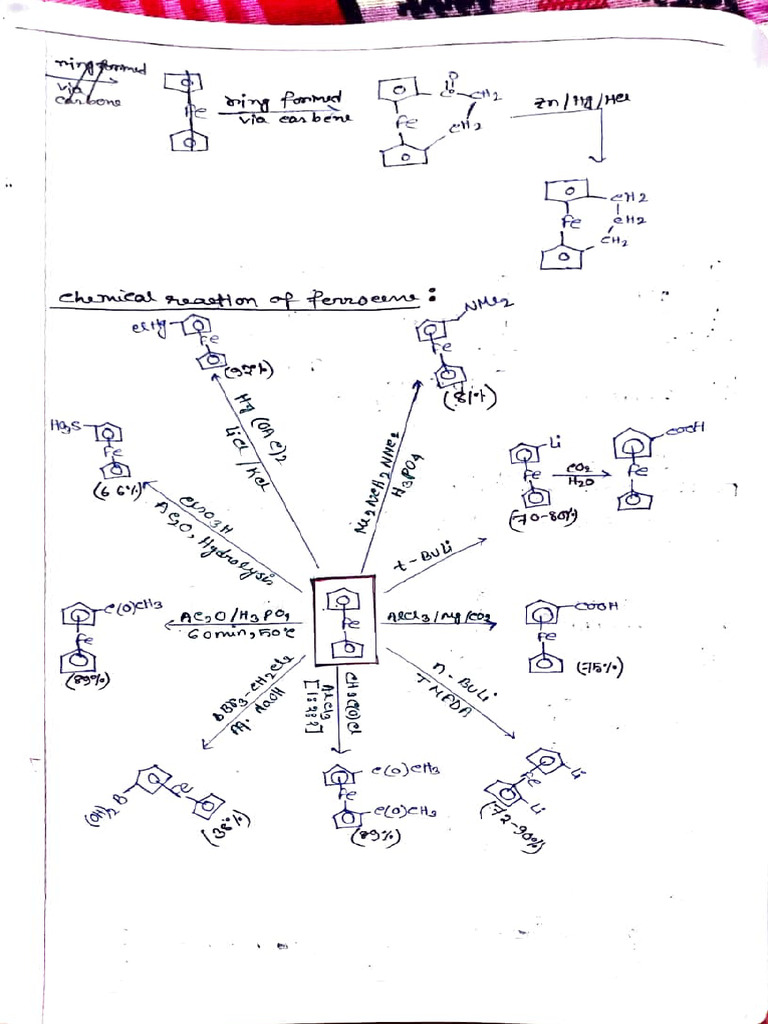 ring formed
via
carbene
Fe
ring formed
via carbene
Fe
O
C
CH2
CH2
Zn/Hg/HCl
Fe
CH2
CH2
CH2
Chemical reaction of ferrocene :
ClHg
Fe
(97%)
NMe2
Fe
(81%)
Hg(OAc)2
LiCl/KCl
Me2NCH2NMe2
H3PO4
HO3S
Fe
(66%)
ClSO3H
AC2O, Hydrolysis
Li
Fe
(70-80%)
CO2
H2O
COOH
Fe
t-BuLi
C(O)CH3
Fe
(89%)
AC2O/H3PO4
60min, 50°C
Fe
AlCl3/Mg/CO2
COOH
Fe
(75%)
BBr3-CH2Cl2
Aq. NaOH
CH3C(O)Cl
AlCl3
n-BuLi
TMEDA
(OH)2B
(38%)
C(O)CH3
Fe
C(O)CH3
(89%)
Li
Fe
Li
(72-90%)